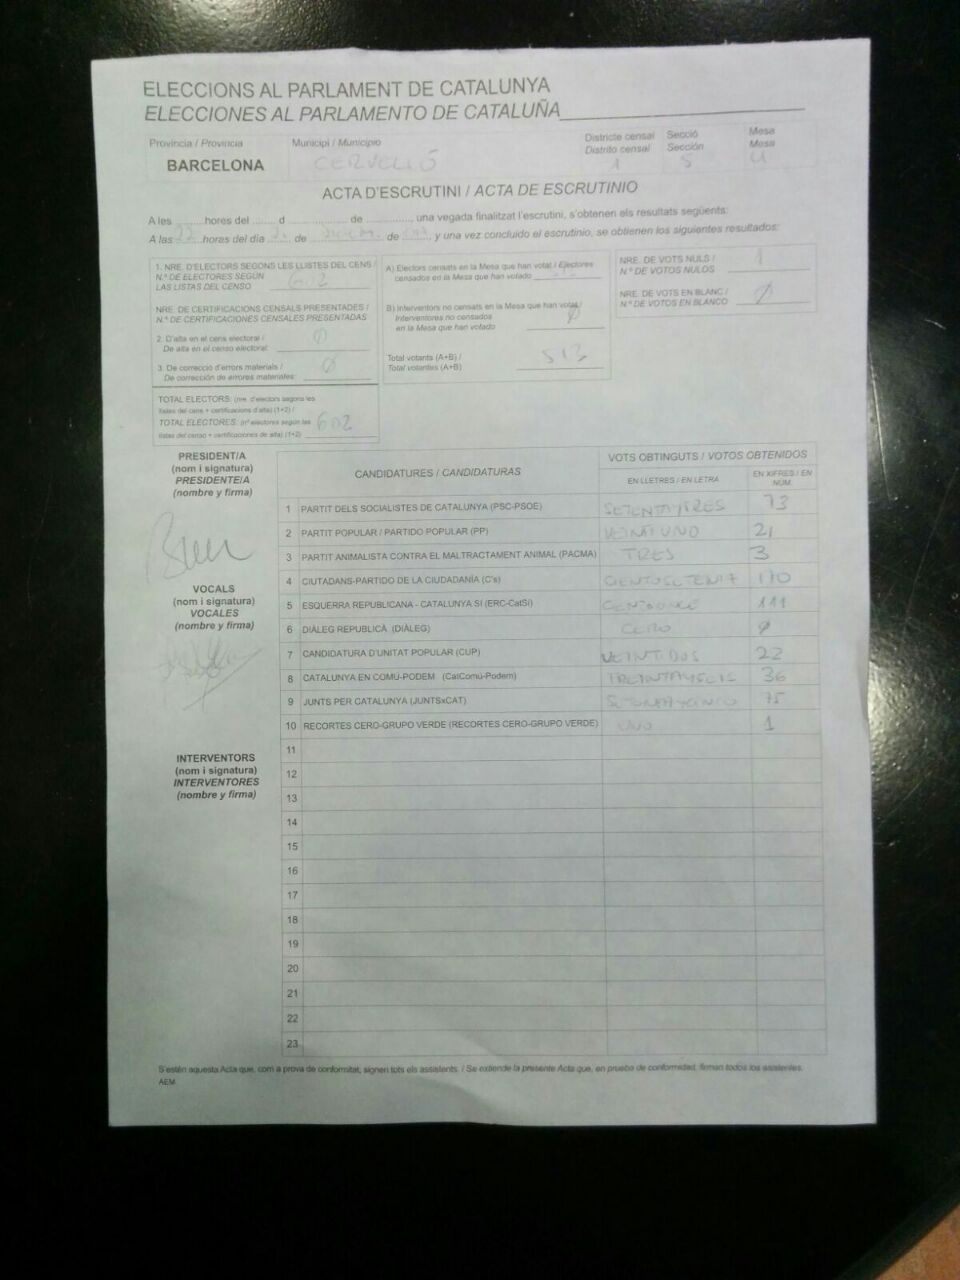 ELECCIONS AL PARLAMENT DE CATALUNYA
ELECCIONES AL PARLAMENTO DE CATALUÑA
Provincia / Provincia
BARCELONA
Municipi / Municipio
CERVELLÓ
Districte censal
Distrito censal
1
Secció
Sección
5
Mesa
Mesa
U
ACTA D'ESCRUTINI / ACTA DE ESCRUTINIO
A les hores del d de , una vegada finalitzat l'escrutini, s'obtenen els resultats següents:
A las 22 horas del día de de y una vez concluido el escrutinio, se obtienen los siguientes resultados:
1. NRE. D'ELECTORS SEGONS LES LLISTES DEL CENS /
N.º DE ELECTORES SEGÚN
LAS LISTAS DEL CENSO 602
NRE. DE CERTIFICACIONS CENSALS PRESENTADES /
N.º DE CERTIFICACIONES CENSALES PRESENTADAS
2. D'alta en el cens electoral /
De alta en el censo electoral: 0
3. De correcció d'errors materials /
De corrección de errores materiales: 0
TOTAL ELECTORS: (nre. d'electors segons les
llistes del cens + certificacions d'alta) (1+2) /
TOTAL ELECTORES: (nº electores según las
listas del censo + certificaciones de alta) (1+2) 602
A) Electors censats en la Mesa que han votat / Electores
censados en la Mesa que han votado
B) Interventors no censats en la Mesa que han votat /
Interventores no censados
en la Mesa que han votado 0
Total votants (A+B) /
Total votantes (A+B) 513
NRE. DE VOTS NULS /
N.º DE VOTOS NULOS 1
NRE. DE VOTS EN BLANC /
N.º DE VOTOS EN BLANCO 0
PRESIDENT/A
(nom i signatura)
PRESIDENTE/A
(nombre y firma)
VOCALS
(nom i signatura)
VOCALES
(nombre y firma)
INTERVENTORS
(nom i signatura)
INTERVENTORES
(nombre y firma)
CANDIDATURES / CANDIDATURAS
VOTS OBTINGUTS / VOTOS OBTENIDOS
EN LLETRES / EN LETRA
EN XIFRES / EN NÚM.
1 PARTIT DELS SOCIALISTES DE CATALUNYA (PSC-PSOE) SETENTAYTRES 73
2 PARTIT POPULAR / PARTIDO POPULAR (PP) VEINTIUNO 21
3 PARTIT ANIMALISTA CONTRA EL MALTRACTAMENT ANIMAL (PACMA) TRES 3
4 CIUTADANS-PARTIDO DE LA CIUDADANÍA (C's) CIENTOSETENTA 170
5 ESQUERRA REPUBLICANA - CATALUNYA SÍ (ERC-CatSí) CENTOONCE 111
6 DIÀLEG REPUBLICÀ (DIÀLEG) CERO 0
7 CANDIDATURA D'UNITAT POPULAR (CUP) VEINTIDOS 22
8 CATALUNYA EN COMÚ-PODEM (CatComú-Podem) TREINTAYSEIS 36
9 JUNTS PER CATALUNYA (JUNTSxCAT) SETENTAYCINCO 75
10 RECORTES CERO-GRUPO VERDE (RECORTES CERO-GRUPO VERDE) UNO 1
11
12
13
14
15
16
17
18
19
20
21
22
23
S'estén aquesta Acta que, com a prova de conformitat, signen tots els assistents. / Se extiende la presente Acta que, en prueba de conformidad, firman todos los asistentes.
AEM